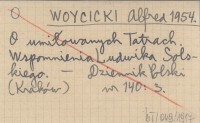 O WOYCICKI Alfred 1954.
O umiłowanych Tatrach.
Wspomnienia Ludwika Sols-
kiego. — Dziennik Polski
(Kraków) nr 140: s.